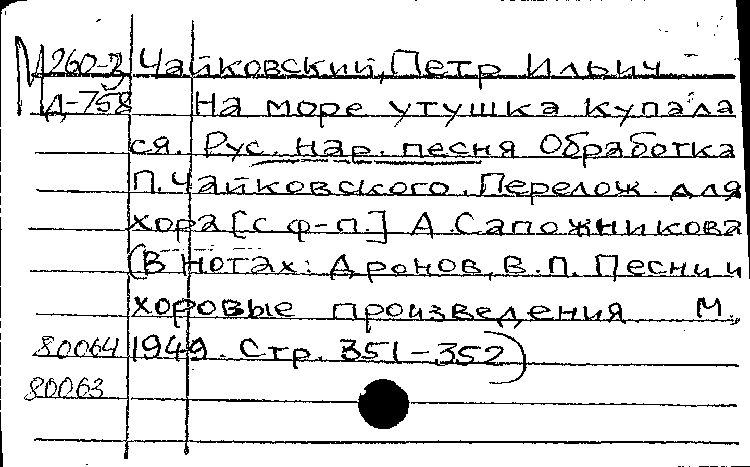 М 260-2 Чайковский, Петр Ильич
Д-758 На море утушка купала
ся. Рус. нар. песня Обработка
П. Чайковского. Перелож. для
хора [с ф-п.] А. Сапожникова
(В нотах: Дронов, В.П. Песни и
хоровые произведения М.,
80064 1949. Стр. 351-352)
80063